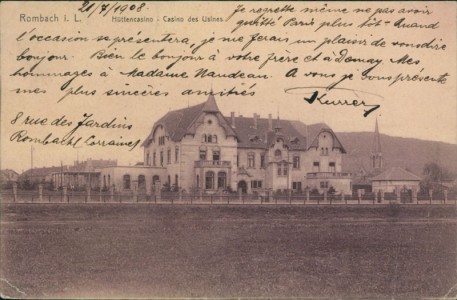 Rombach i. L.
Hüttencasino - Casino des Usines
21/7/1908
je regrette même ne pas avoir
quitté Paris plus tôt - Quand
l'occasion se présentera, je me ferais un plaisir de vous dire
bonjour. Bien le bonjour à votre frère et à Demay. Mes
hommages à Madame Naudeau. A vous je vous présente
mes plus sincères amitiés
8 rue des Jardins
Rombach (Lorraine)